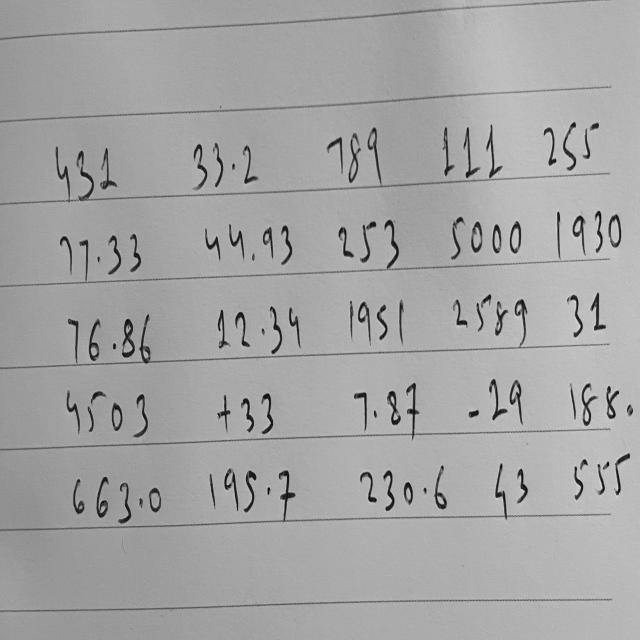 431 33.2 789 111 255
77.33 44.93 253 5000 1930
76.86 12.34 1951 2589 31
4503 +33 7.87 -29 188.
663.0 195.7 230.6 43 555